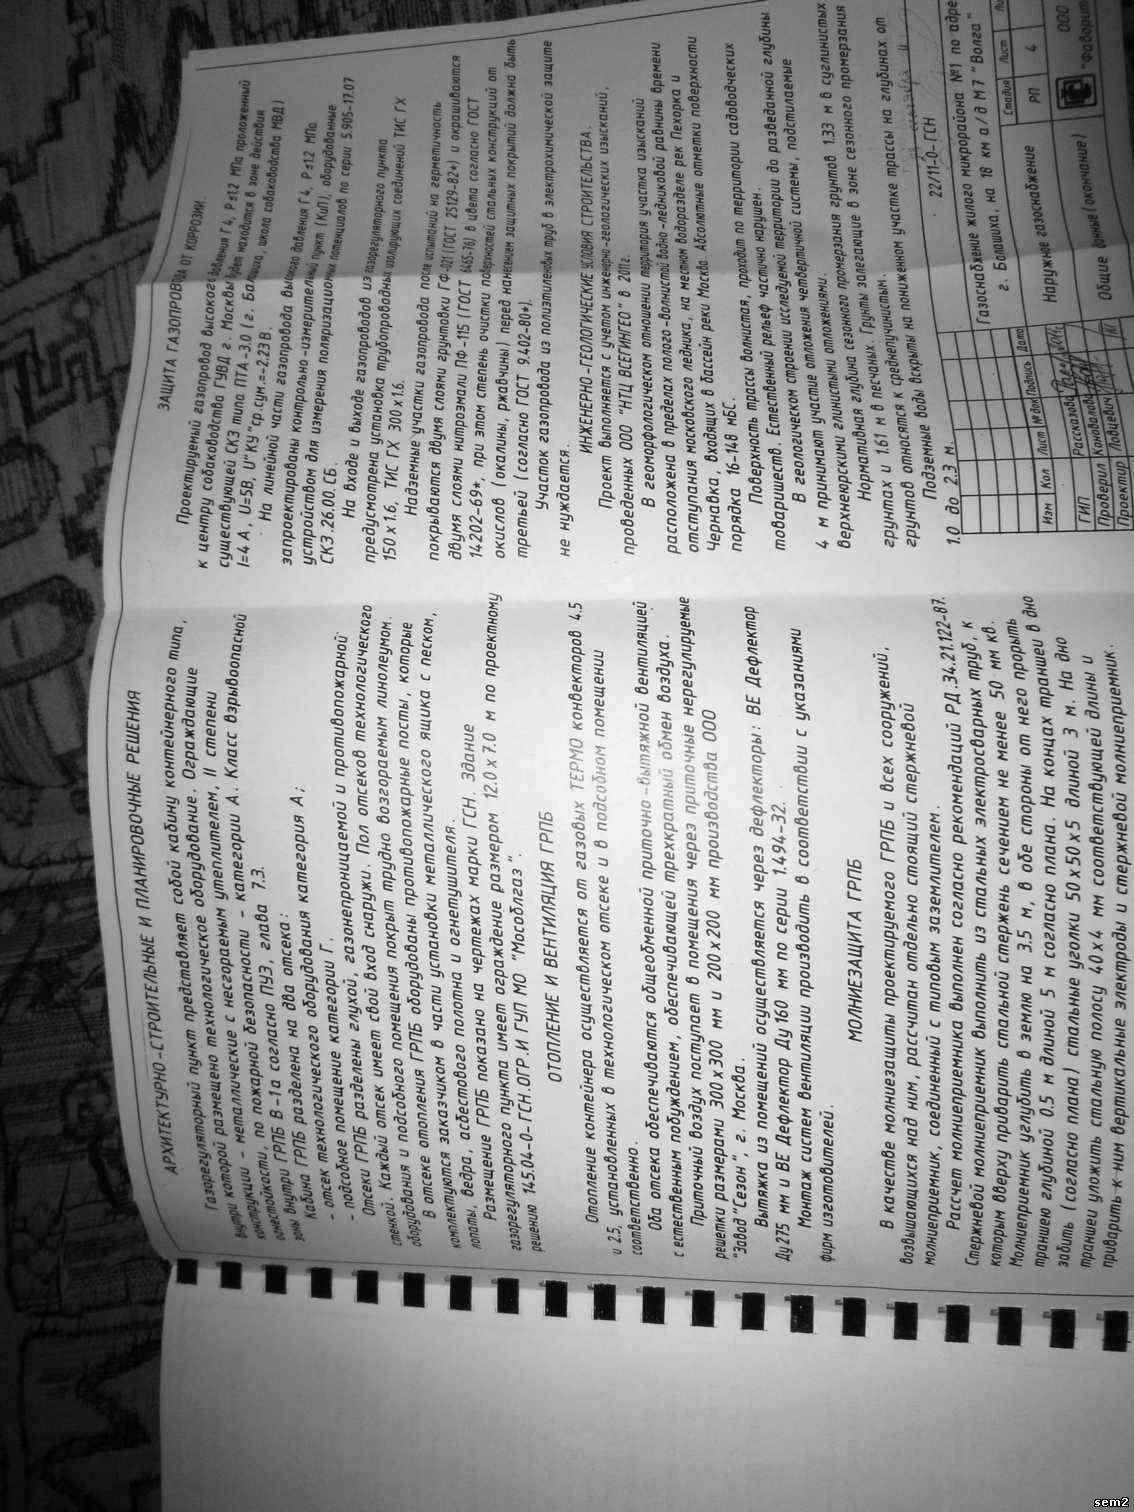 АРХИТЕКТУРНО-СТРОИТЕЛЬНЫЕ И ПЛАНИРОВОЧНЫЕ РЕШЕНИЯ
Газорегуляторный пункт представляет собой кабину контейнерного типа,
внутри которой размещено технологическое оборудование. Ограждающие
конструкции - металлические с несгораемым утеплителем, II степени
огнестойкости, по пожарной безопасности - категории А. Класс взрывоопасной
зоны внутри ГРПБ В-1а согласно ПУЭ, глава 7.3.
Кабина ГРПБ разделена на два отсека:
- отсек технологического оборудования категория А;
- подсобное помещение категории Г.
Отсеки ГРПБ разделены глухой, газонепроницаемой и противопожарной
стенкой. Каждый отсек имеет свой вход снаружи. Пол отсеков технологического
оборудования и подсобного помещения покрыт трудно возгораемым линолеумом.
В отсеке отопления ГРПБ оборудованы противопожарные посты, которые
комплектуются заказчиком в части установки металлического ящика с песком,
лопаты, ведра, асбестового полотна и огнетушителя.
Размещение ГРПБ показано на чертежах марки ГСН. Здание
газорегуляторного пункта имеет ограждение размером 12.0х7.0 м по проектному
решению 145.04-0-ГСН.ОГР.И ГУП МО "Мособлгаз".
ОТОПЛЕНИЕ И ВЕНТИЛЯЦИЯ ГРПБ
Отопление контейнера осуществляется от газовых ТЕРМО конвекторов 4.5
и 2.5, установленных в технологическом отсеке и в подсобном помещении
соответственно.
Оба отсека обеспечиваются общеобменной приточно-вытяжной вентиляцией
с естественным побуждением, обеспечивающей трехкратный обмен воздуха.
Приточный воздух поступает в помещения через приточные нерегулируемые
решетки размерами 300х300 мм и 200х200 мм производства ООО
"Завод "Сезон", г. Москва.
Вытяжка из помещений осуществляется через дефлекторы: ВЕ Дефлектор
Ду275 мм и ВЕ Дефлектор Ду 160 мм по серии 1.494-32.
Монтаж систем вентиляции производить в соответствии с указаниями
фирм изготовителей.
МОЛНИЕЗАЩИТА ГРПБ
В качестве молниезащиты проектируемого ГРПБ и всех сооружений,
возвышающихся над ним, рассчитан отдельно стоящий стержневой
молниеприемник, соединенный с типовым заземлителем.
Рассчет молниеприемника выполнен согласно рекомендаций РД.34.21.122-87.
Стержневой молниеприемник выполнить из стальных электросварных труб, к
которым вверху приварить стальной стержень сечением не менее 50 мм кв.
Молниеприемник углубить в землю на 3.5 м, в обе стороны от него прорыть
траншею глубиной 0.5 м длиной 5 м согласно плана. На концах траншеи в дно
забить (согласно плана) стальные уголки 50х50х5 длиной 3 м. На дно
траншеи уложить стальную полосу 40х4 мм соответствующей длины и
приварить к ним вертикальные электроды и стержневой молниеприемник.
ЗАЩИТА ГАЗОПРОВОДА ОТ КОРРОЗИИ.
Проектируемый газопровод высокого давления Г4, Р≤1.2 МПа проложенный
к центру собаководства ГУВД г. Москвы будет находится в зоне действия
существующей СКЗ типа ПТА-3,0 (г. Балашиха, школа собаководства МВД)
I=4 А, U=5В, U"КУ"ср.сум.=-2.23 В.
На линейной части газопровода высокого давления Г4, Р≤1.2 МПа
запроектированы контрольно-измерительный пункт (КиП), оборудованные
устройством для измерения поляризационных потенциалов по серии 5.905-17.07
СКЗ.26.00.СБ.
На входе и выходе газопроводов из газорегуляторного пункта
предусмотрена установка трубопроводных изолирующих соединений ТИС ГХ
150х1.6, ТИС ГХ 300х1.6.
Надземные участки газопровода после испытаний на герметичность
покрываются двумя слоями грунтовки ГФ-021 (ГОСТ 25129-82*) и окрашиваются
двумя слоями нитроэмали ПФ-115 (ГОСТ 6465-76) в цвета согласно ГОСТ
14202-69*, при этом степень очистки поверхностей стальных конструкций от
окислов (окалины, ржавчины) перед нанесением защитных покрытий должна быть
третьей (согласно ГОСТ 9.402-80*).
Участок газопровода из полиэтиленовых труб в электрохимической защите
не нуждается.
ИНЖЕНЕРНО-ГЕОЛОГИЧЕСКИЕ УСЛОВИЯ СТРОИТЕЛЬСТВА.
Проект выполняется с учетом инженерно-геологических изысканий,
проведенных ООО "НТЦ ВСЕГИНГЕО" в 2011г.
В геоморфологическом отношении территория участка изысканий
расположена в пределах полого-волнистой водно-ледниковой равнины времени
отступания московского ледника, на местном водоразделе рек Пехорка и
Чернавка, входящих в бассейн реки Москва. Абсолютные отметки поверхности
порядка 16-148 мБС.
Поверхность трассы волнистая, проходит по территории садоводческих
товариществ. Естественный рельеф частично нарушен.
В геологическом строении исследуемой территории до разведанной глубины
4 м принимают участие отложения четвертичной системы, подстилаемые
верхнеюрскими глинистыми отложениями.
Нормативная глубина сезонного промерзания грунтов 1.33 м в суглинистых
грунтах и 1.61 м в песчаных. Грунты залегающие в зоне сезонного промерзания
грунтов относятся к среднепучинистым.
Подземные воды вскрыты на пониженном участке трассы на глубинах от
1.0 до 2.3 м.
22/11-0-ГСН
Газоснабжение жилого микрорайона №1 по адре
г. Балашиха, на 18 км а/д М7 "Волга"
Изм Кол Лист № док Подпись Дата
ГИП Рассказова
Проверил Коновалова
Проектир Лоцевич
Наружное газоснабжение
Стадия Лист Ли
РП 4
Общие данные (окончание)
ООО
"Фаворит
sem2